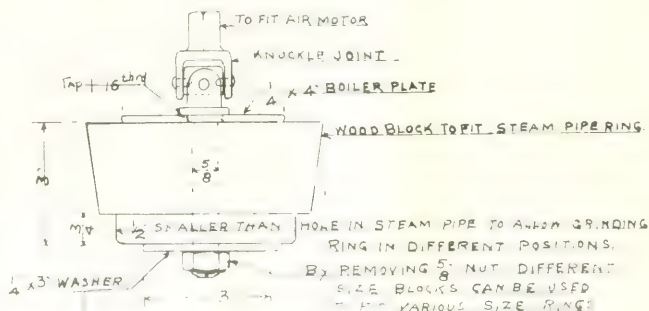 TO FIT AIR MOTOR
KNUCKLE JOINT
TAP + 16 thrd
1/4 x 4" BOILER PLATE
WOOD BLOCK TO FIT STEAM PIPE RING.
5/8
3"
3/4
1/2" SMALLER THAN HOLE IN STEAM PIPE TO ALLOW GRINDING
RING IN DIFFERENT POSITIONS.
BY REMOVING 5/8" NUT DIFFERENT
SIZE BLOCKS CAN BE USED
VARIOUS SIZE RINGS
1/4 x 3" WASHER
3